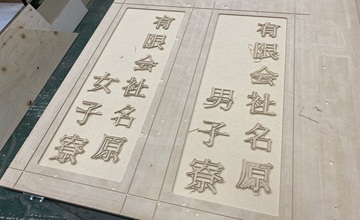 有限会社名原
男子寮
有限会社名原
女子寮